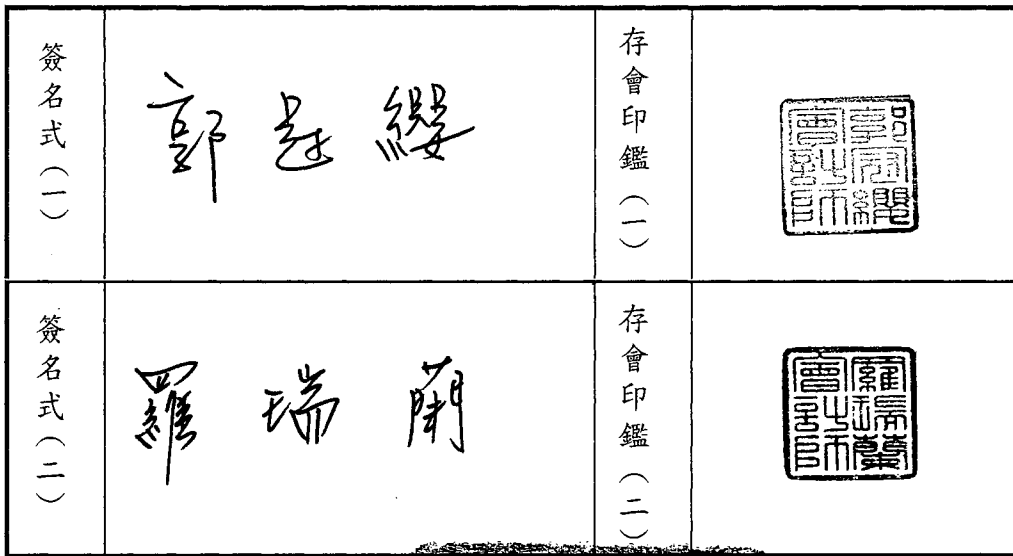 簽名式(一)
郭冠纓
存會印鑑(一)
郭冠纓
會計師
簽名式(二)
羅瑞蘭
存會印鑑(二)
羅瑞蘭
會計師